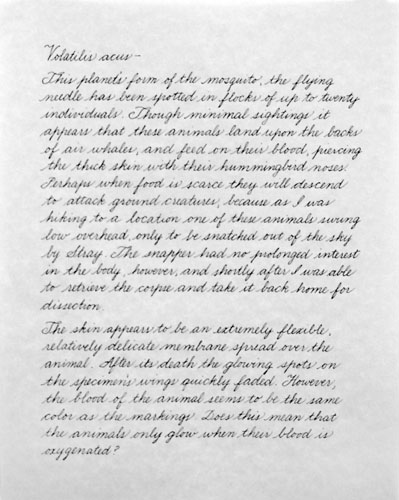 Volatilis acus -
This planets form of the mosquito, the flying
needle has been spotted in flocks of up to twenty
individuals. Though minimal sightings it
appears that these animals land upon the backs
of air whales, and feed on their blood, piercing
the thick skin with their hummingbird noses.
Perhaps when food is scarce they will descend
to attack ground creatures, because as I was
hiking to a location one of these animals swung
low overhead, only to be snatched out of the sky
by Stray. The snapper had no prolonged interest
in the body, however, and shortly after I was able
to retrieve the corpse and take it back home for
dissection.
The skin appears to be an extremely flexible,
relatively delicate membrane spread over the
animal. After its death the glowing spots on
the specimens wings quickly faded. However,
the blood of the animal seems to be the same
color as the markings. Does this mean that
the animals only glow when their blood is
oxygenated?